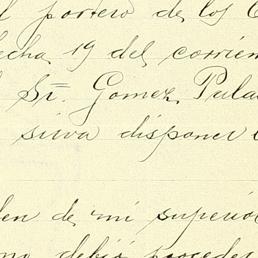 l portero de los C
fecha 19 del corrien
l Sr. Gomez Pula
sirva disponer
den de mi superio
no debió proceder